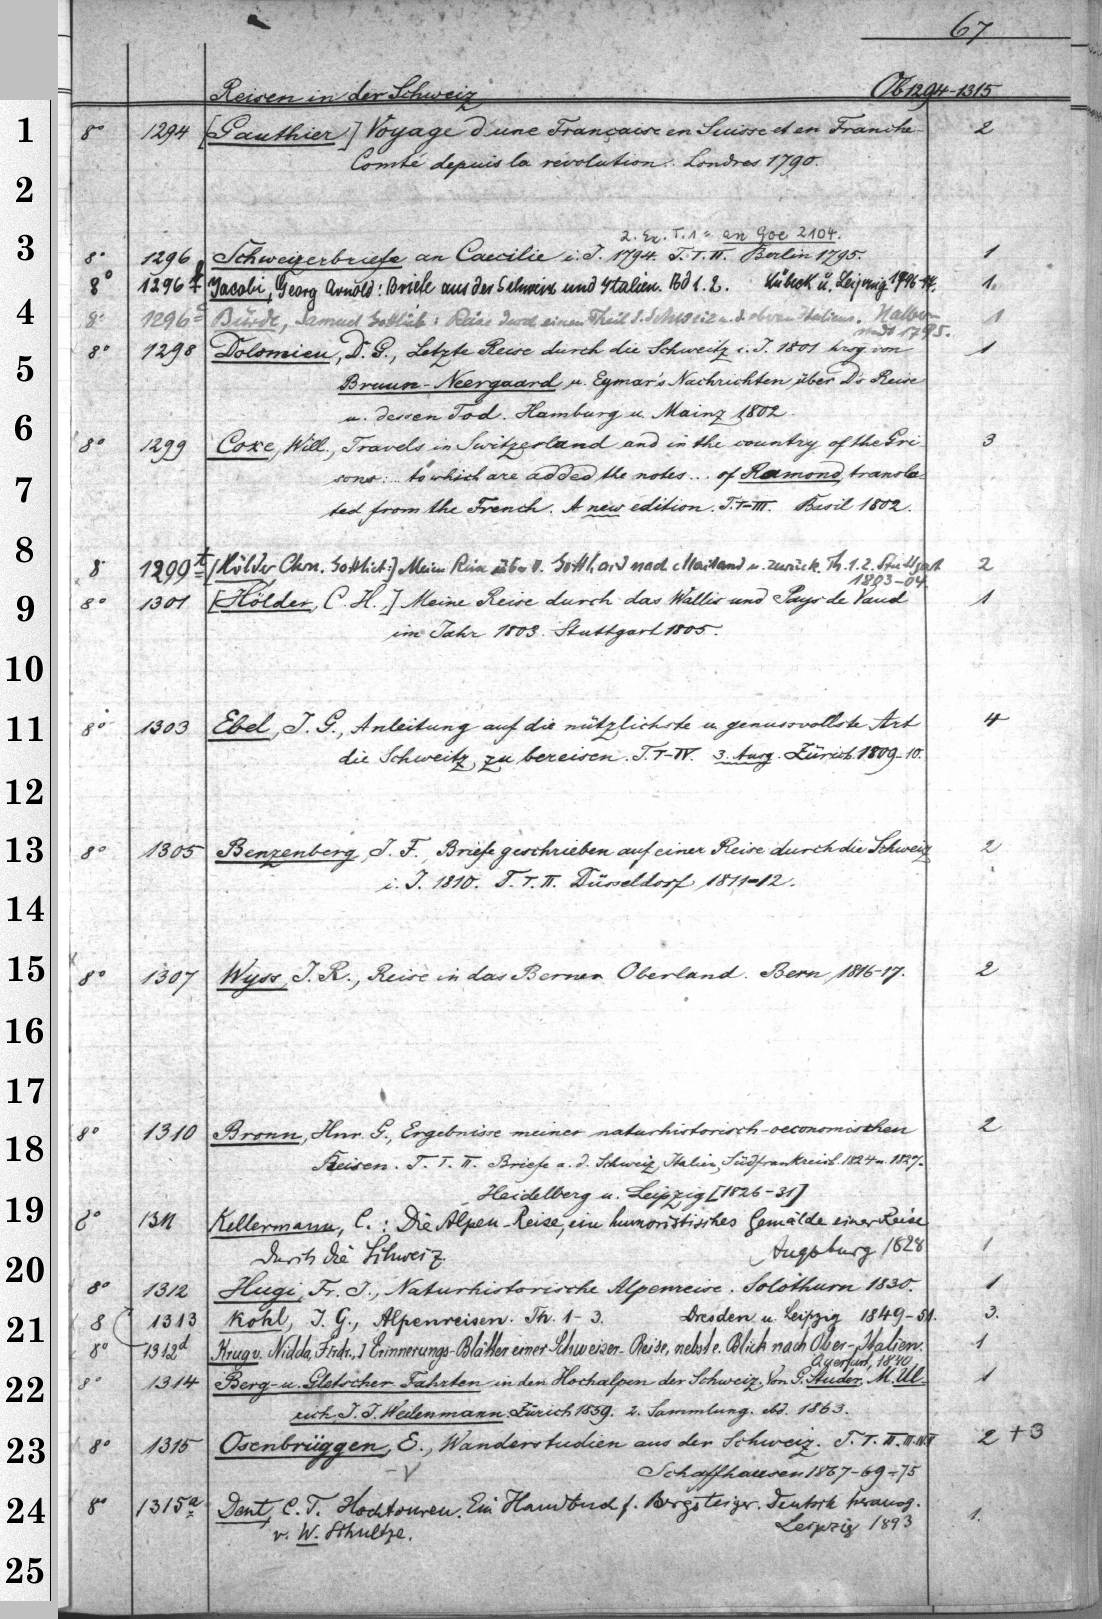 67
Reisen in der Schweiz Ob 1294-1315
1 8° 1294 [Gauthier] Voyage d'une Française en Suisse et en Franche- 2
Comté depuis la révolution. Londres 1790.
2
2. Ex. T. 1 = an Goe 2104.
3 8° 1296 Schweizerbriefe an Caecilie i. J. 1794. T. I. II. Berlin 1795. 1
8° 1296 f Jacobi, Georg Arnold: Briefe aus der Schweiz und Italien. Bd 1. 2. Lübeck u. Leipzig 1796-97. 1.
4 8° 1296 Bürde, Samuel Gottlieb: Reise durch einen Theil d. Schweiz u. d. obern Italiens. Halber- 1
stadt 1795.
5 8° 1298 Dolomieu, D. G., Letzte Reise durch die Schweitz i. J. 1801 hrsg. von 1
Bruun-Neergaard u. Eymar's Nachrichten über D's Reise
6 u. dessen Tod. Hamburg u. Mainz 1802.
8° 1299 Coxe, Will., Travels in Switzerland and in the country of the Gri 3
7 sons: ... to which are added the notes ... of Ramond, transla-
ted from the French. A new edition. T. I-III. Basil 1802.
8 8 1299 t [Hölder Chrn. Gottlieb:] Meine Reise über d. Gotthard nach Mailand u. zurück. Th. 1. 2. Stuttgart 2
1803-04.
9 8° 1301 [Hölder, C. H.,] Meine Reise durch das Wallis und Pays de Vaud 1
im Jahr 1803. Stuttgart 1805.
10
11 8° 1303 Ebel, J. G., Anleitung auf die nützlichste u. genussvollste Art 4
die Schweitz zu bereisen. T. I-IV. 3. Ausg. Zürich 1809-10.
12
13 8° 1305 Benzenberg, J. F., Briefe geschrieben auf einer Reise durch die Schweiz 2
i. J. 1810. T. I. II. Düsseldorf 1811-12.
14
15 8° 1307 Wyss, J. R., Reise in das Berner Oberland. Bern 1816-17. 2
16
17
18 8° 1310 Bronn, Hnr. G., Ergebnisse meiner naturhistorisch-oeconomischen 2
Reisen. T. I. II. Briefe a. d. Schweiz, Italien, Südfrankreich 1824 u. 1827.
Heidelberg u. Leipzig [1826-31]
19 8° 1311 Kellermann, C.: Die Alpen-Reise, ein humoristisches Gemälde einer Reise
durch die Schweiz. Augsburg 1828 1
20 8° 1312 Hugi, Fr. J., Naturhistorische Alpenreise. Solothurn 1830. 1
21 8 1313 Kohl, J. G., Alpenreisen. Th. 1-3. Dresden u. Leipzig 1849-51. 3.
8° 1312d Krug v. Nidda, Friedr., Erinnerungs-Blätter einer Schweizer-Reise, nebst e. Blick nach Ober-Italien. 1
Querfurt, 1840.
22 8° 1314 Berg- u. Gletscher Fahrten in den Hochalpen der Schweiz. Von G. Studer, M. Ul- 1
rich J. J. Weilenmann. Zürich 1859. 2. Sammlung. ebd. 1863.
23 8° 1315 Osenbrüggen, E., Wanderstudien aus der Schweiz. T. I. II. III. IV. V 2 + 3
-V Schaffhausen 1867-69-75
24 8° 1315a Dent, C. T. Hochtouren. Ein Handbuch f. Bergsteiger. Deutsch herausg.
v. W. Schultze. Leipzig 1893 1.
25